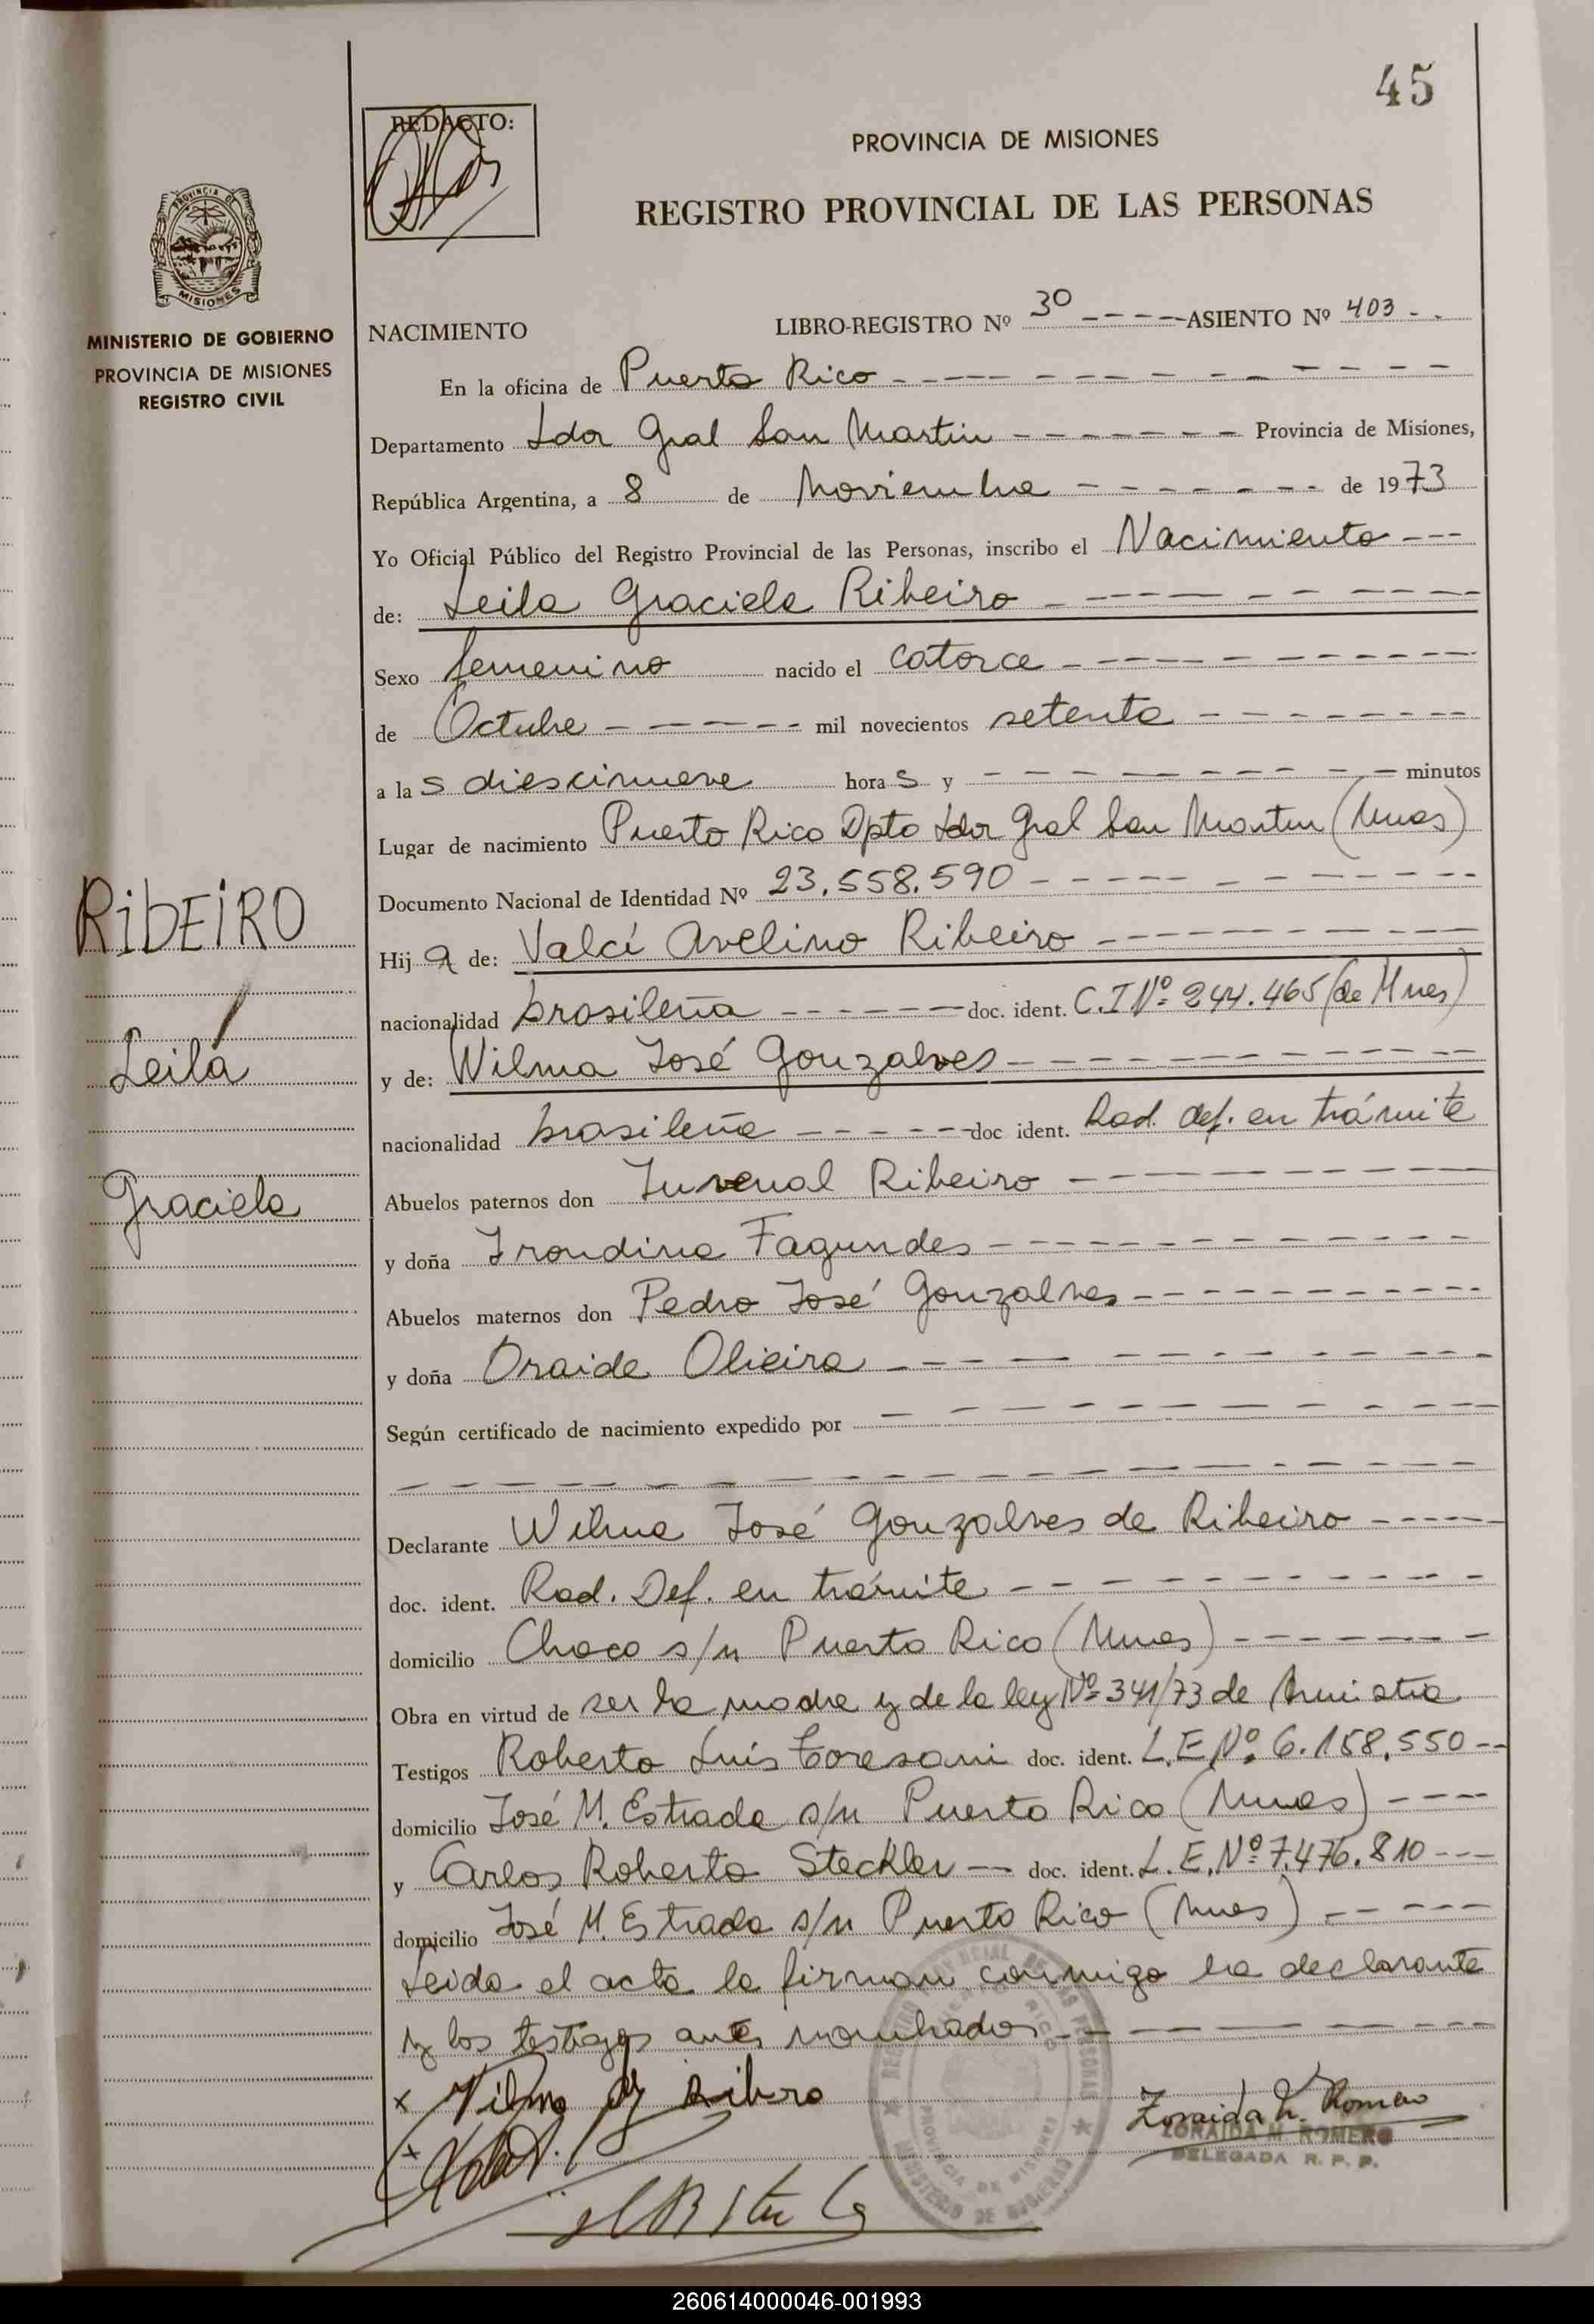 45
REDACTO:
PROVINCIA DE MISIONES
REGISTRO PROVINCIAL DE LAS PERSONAS
PROVINCIA DE
MISIONES
MINISTERIO DE GOBIERNO
PROVINCIA DE MISIONES
REGISTRO CIVIL
NACIMIENTO LIBRO-REGISTRO Nº 3º ASIENTO Nº 403
En la oficina de Puerto Rico
Departamento Ldor Gral San Martin Provincia de Misiones,
República Argentina, a 8 de Noviembre de 1973
Yo Oficial Público del Registro Provincial de las Personas, inscribo el Nacimiento
de: Leila Graciela Ribeiro
Sexo femenino nacido el catorce
de Octubre mil novecientos setenta
a las diescinueve horas y minutos
Lugar de nacimiento Puerto Rico Dpto Ldor Gral San Martin (Mnes)
Documento Nacional de Identidad Nº 23.558.590
Hija de: Valcí Avelino Ribeiro
nacionalidad brasileña doc. ident. C.I Nº 244.465 (de Mnes)
y de: Wilma José Gonzalves
nacionalidad brasileña doc ident. Rad. def. en trámite
Abuelos paternos don Juvenal Ribeiro
y doña Irondina Fagundes
Abuelos maternos don Pedro José Gonzalves
y doña Oraide Olieira
Según certificado de nacimiento expedido por
Declarante Wilma José Gonzalves de Ribeiro
doc. ident. Rad. Def. en trámite
domicilio Chaco s/n Puerto Rico (Mnes)
Obra en virtud de ser la madre y de la ley Nº 341/73 de Amnistia
Testigos Roberto Luis Coresani doc. ident. L.E Nº 6.158.550
domicilio José M. Estrada s/n Puerto Rico (Mnes)
y Carlos Roberto Steckler doc. ident. L.E.Nº 7.476.810
domicilio José M. Estrada s/n Puerto Rico (Mnes)
Leida el acta la firman conmigo la declarante
y los testigos antes nombrados
RibEiRO
Leila
Graciela
x Vilma Ribero
Zoraida M. Romero
ZORAIDA M. ROMERO
DELEGADA R. P. P.
260614000046-001993